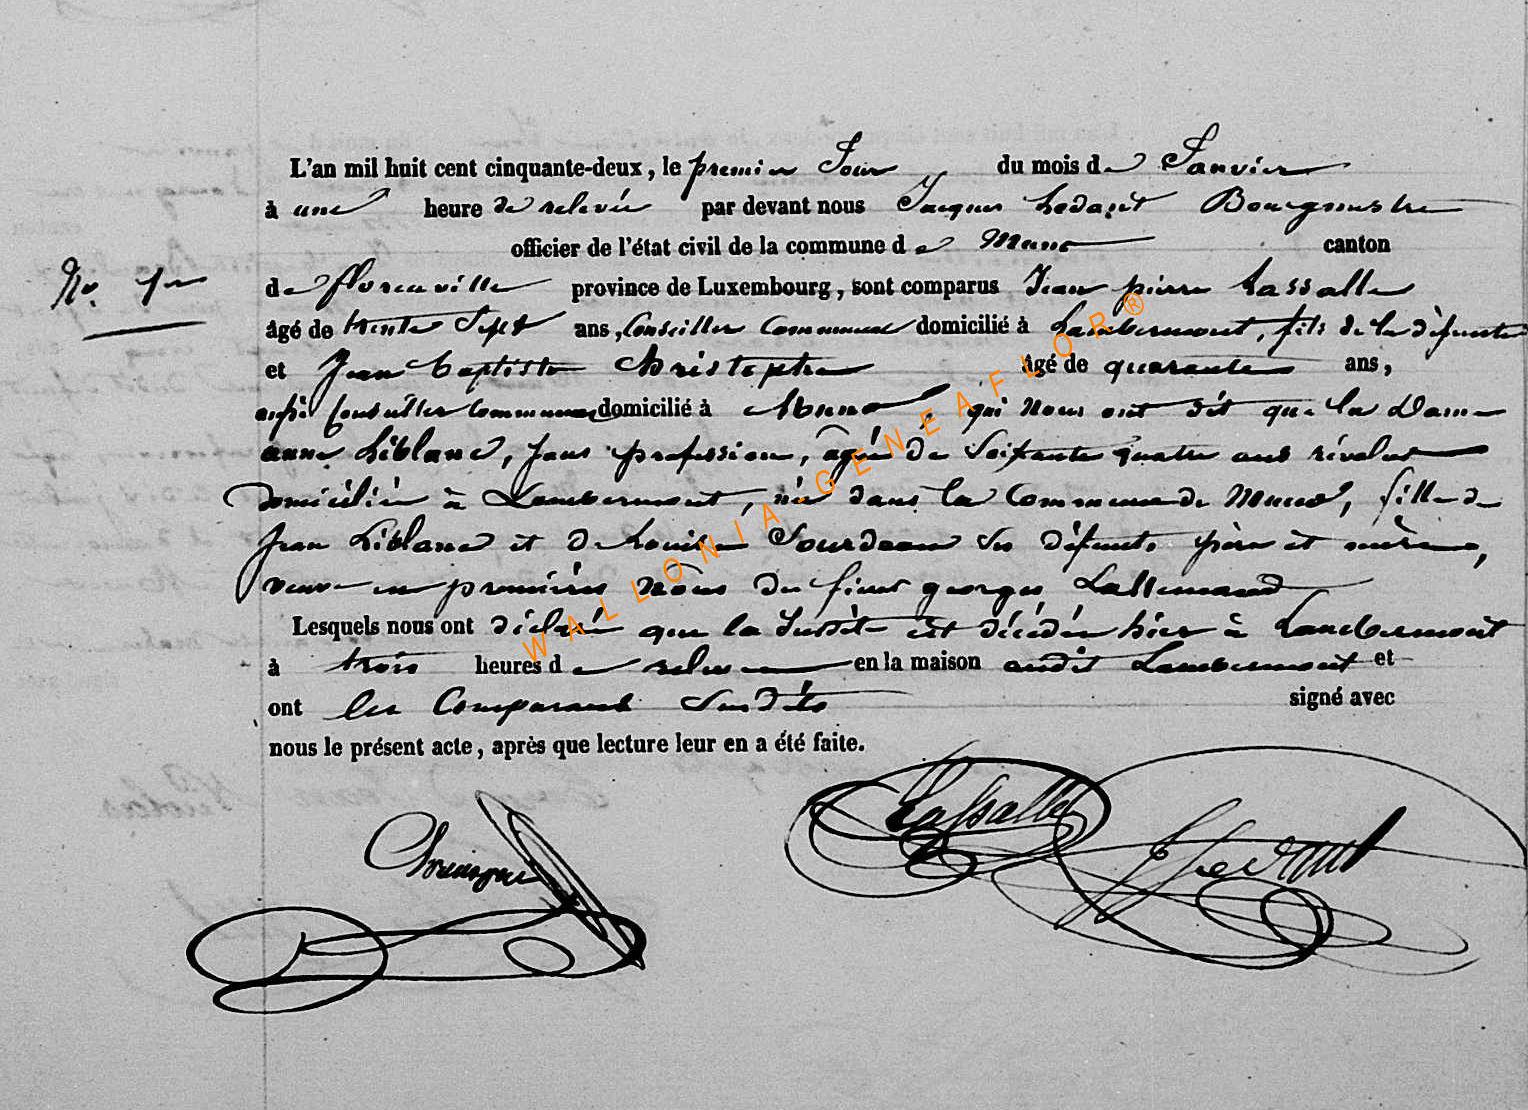 L'an mil huit cent cinquante-deux, le premier Jour du mois de Janvier
à une heure de relevée par devant nous Jacques Bourgmestre
officier de l'état civil de la commune de Muno canton
No. 1er
de florenville province de Luxembourg, sont comparus Jean pierre Lassalle
âgé de trente Sept ans, Conseiller Communal domicilié à Lambermont, fils de la défunte
et Jean baptiste Christophe âgé de quarante ans,
aussi Conseiller Communal domicilié à Muno, qui nous ont dit que la Dame
anne Leblanc, sans profession, agée de Soixante quatre ans révolus
domiciliée à Lambermont, née dans la Commune de Muno, fille de
Jean Leblanc et de Louise Jourdean Ses défunts père et mère,
veuve en premières Nôces du sieur georges Lallemand
Lesquels nous ont déclaré que la Susdite est décédée hier à Lambermont
à trois heures de relevée en la maison audit Lambermont et
ont les Comparants Susdits signé avec
nous le présent acte, après que lecture leur en a été faite.
Lassalle
WALLONIA-GENEAFLOR®